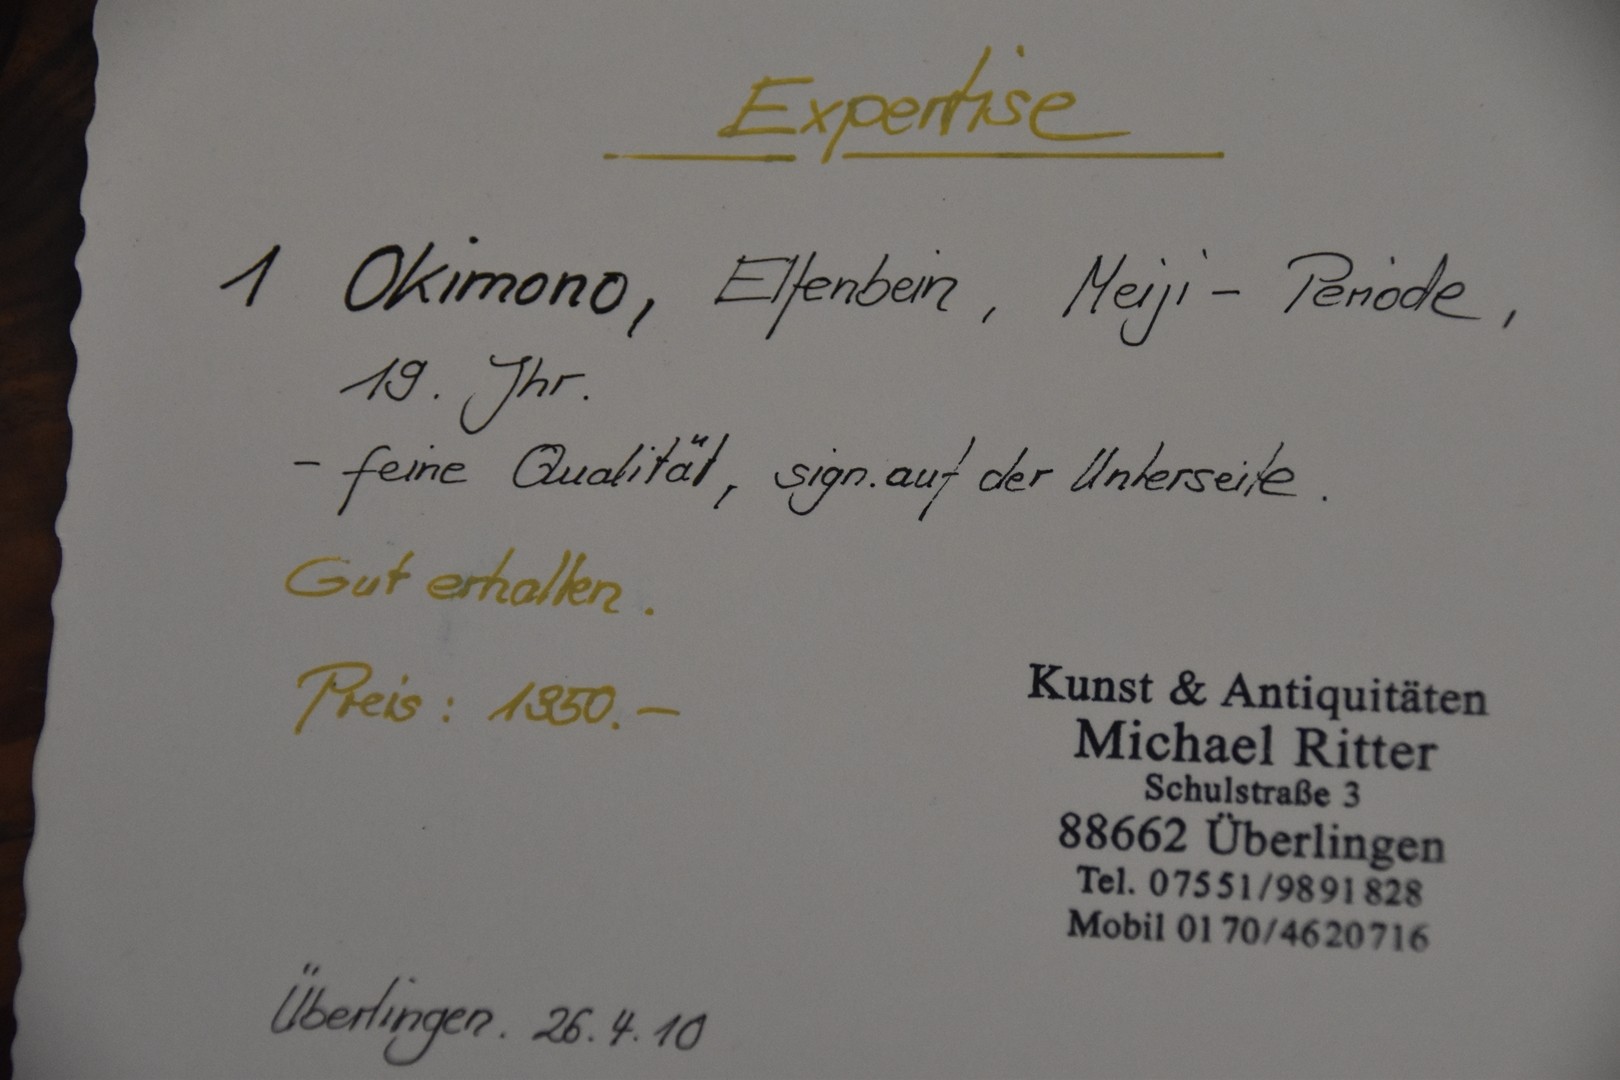 Expertise
1 Okimono, Elfenbein, Meiji - Periode,
19. Jhr.
- feine Qualität, sign. auf der Unterseite.
Gut erhalten.
Preis: 1350.-
Kunst & Antiquitäten
Michael Ritter
Schulstraße 3
88662 Überlingen
Tel. 07551/9891828
Mobil 0170/4620716
Überlingen. 26.4.10